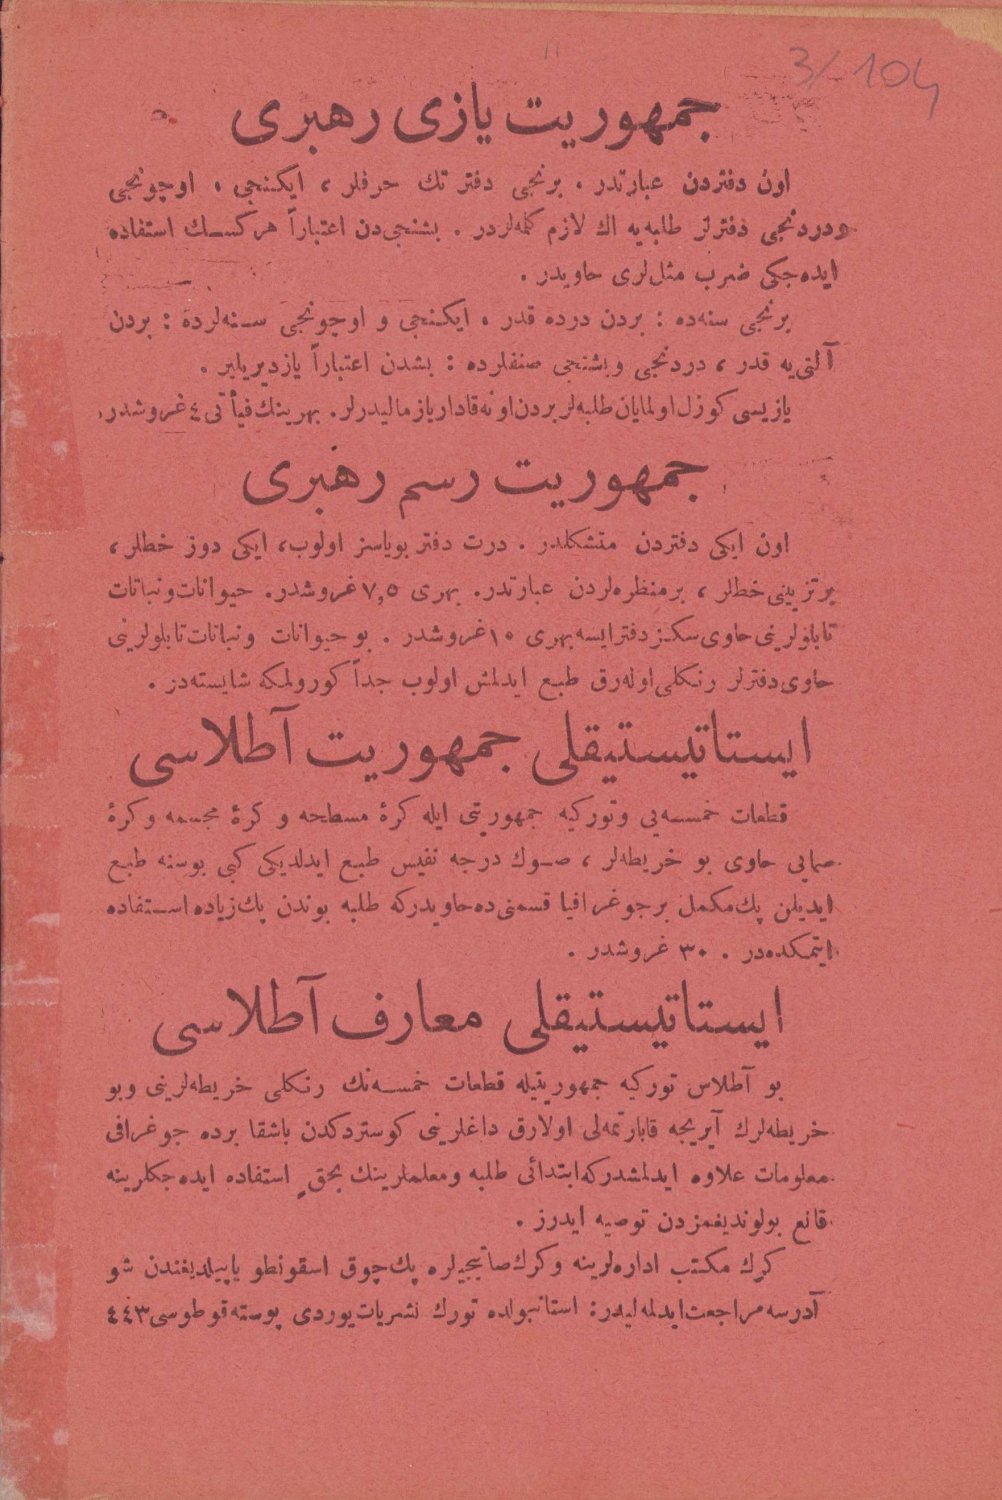 3/104
جمهوريت يازى رهبرى
اون دفتردن عبارتدر . برنجى دفتر تك حرفلر ، ايكنجى ، اوچونجى
ودردنجى دفترلر طلبه‌يه اك لازم كلمه‌لردر . بشنجى‌دن اعتباراً هركسك استفاده
ايده‌جكى ضرب مثل‌لرى حاويدر .
برنجى سنه‌ده : بردن درده قدر ، ايكنجى و اوچونجى سنه‌لرده : بردن
آلتى‌يه قدر ، دردنجى وبشنجى صنفلرده : بشدن اعتباراً يازديريلير .
يازيسى كوزل اولمايان طلبه‌لر بردن اونه قادار يازماليدرلر . بهرينك فيأتى ٤ غروشدر.
جمهوريت رسم رهبرى
اون ايكى دفتردن متشكلدر . درت دفتر بوياسز اولوب، ايكى دوز خطلر ،
برتزيينى خطلر ، برمنظره‌لردن عبارتدر. بهرى ٧,٥ غروشدر. حيوانات ونباتات
تابلولرينى حاوى سكز دفتر ايسه بهرى ١٠ غروشدر . بو حيوانات ونباتات تابلولرينى
حاوى دفترلر رنكلى اوله‌رق طبع ايدلمش اولوب جداً كورولمكه شايسته‌در .
ايستاتيستيقلى جمهوريت آطلاسى
قطعات خمسه‌يى وتوركيه جمهوريتى ايله كرۀ مسطحه و كرۀ مجسمه وكرۀ
سمايى حاوى بو خريطه‌لر ، صوك درجه نفيس طبع ايدلديكى كبى بوسنه طبع
ايديلن پك مكمل برجوغرافيا قسمنى ده حاويدركه طلبه بوندن پك زياده استفاده
ايتمكده‌در . ٣٠ غروشدر .
ايستاتيستيقلى معارف آطلاسى
بو آطلاس توركيه جمهوريتيله قطعات خمسه‌نك رنكلى خريطه‌لرينى وبو
خريطه‌لرك آيريجه قابارتمه‌لى اولارق داغلرينى كوستردكدن باشقا برده جوغرافى
معلومات علاوه ايدلمشدركه ابتدائى طلبه ومعلملرينك بحق استفاده ايده‌جكلرينه
قانع بولونديغمزدن توصيه ايدرز .
كرك مكتب اداره‌لرينه وكرك صاتيجيلره پك چوق اسقونطو ياپيلديغندن شو
آدرسه مراجعت ايدلمه‌ليدر: استانبولده تورك نشريات يوردى پوسته قوطوسى ٤٤٣